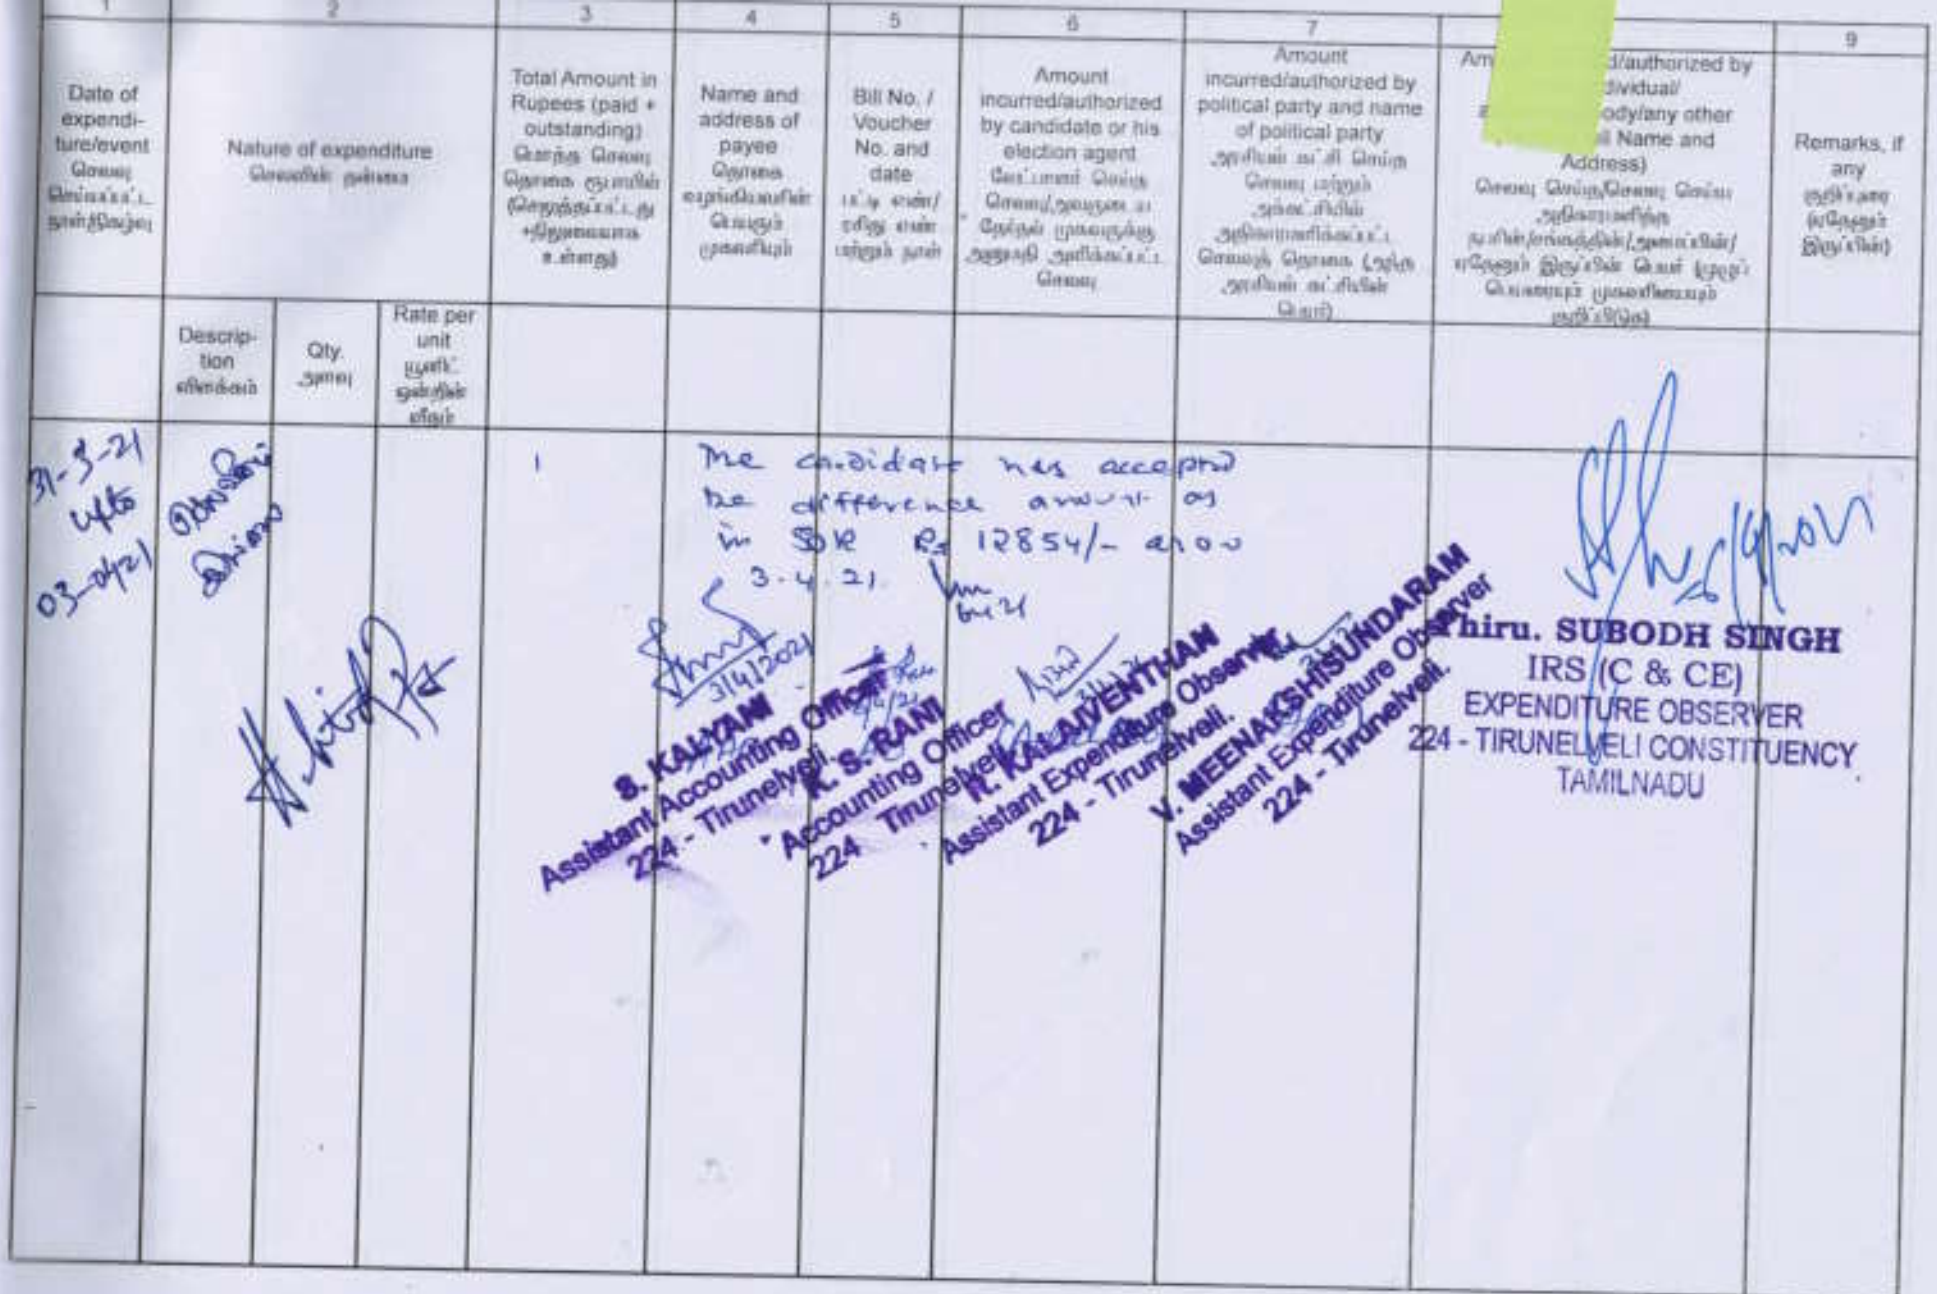 1 2 3 4 5 6 7 9
Date of
expendi-
ture/event
செலவு
செய்யப்பட்ட
நாள்/நிகழ்வு
Nature of expenditure
செலவின் தன்மை
Total Amount in
Rupees (paid +
outstanding)
மொத்த செலவு
தொகை ரூபாயில்
(செலுத்தப்பட்டது
+நிலுவையாக
உள்ளது)
Name and
address of
payee
தொகை
பெறுபவரின்
பெயரும்
முகவரியும்
Bill No. /
Voucher
No. and
date
பட்டி எண்/
ரசீது எண்
மற்றும் நாள்
Amount
incurred/authorized
by candidate or his
election agent
வேட்பாளர் செய்த
செலவு/அவருடைய
தேர்தல் முகவருக்கு
அனுமதி அளிக்கப்பட்ட
செலவு
Amount
incurred/authorized by
political party and name
of political party
அரசியல் கட்சி செய்த
செலவு மற்றும்
அக்கட்சியின்
அதிகாரமளிக்கப்பட்ட
செலவுத் தொகை (அந்த
அரசியல் கட்சியின்
பெயர்)
d/authorized by
dividual/
ody/any other
Name and
Address)
Remarks, if
any
குறிப்புரை
(ஏதேனும்
இருப்பின்)
Descrip-
tion
விளக்கம்
Qty.
அளவு
Rate per
unit
யூனிட்
ஒன்றின்
வீதம்
31-3-21
upto
03-04-21
1
The candidate has accepted
the difference amount as
in SOR Rs 12854/- as on
3.4.21.
3/4/2021
S. KALYANI
Assistant Accounting Officer
224 - Tirunelveli.
K. S. RANI
Accounting Officer
224 Tirunelveli
R. KALAIVENTHAN
Assistant Expenditure Observer
224 - Tirunelveli.
V. MEENAKSHISUNDARAM
Assistant Expenditure Observer
224 - Tirunelveli.
Thiru. SUBODH SINGH
IRS (C & CE)
EXPENDITURE OBSERVER
224 - TIRUNELVELI CONSTITUENCY
TAMILNADU